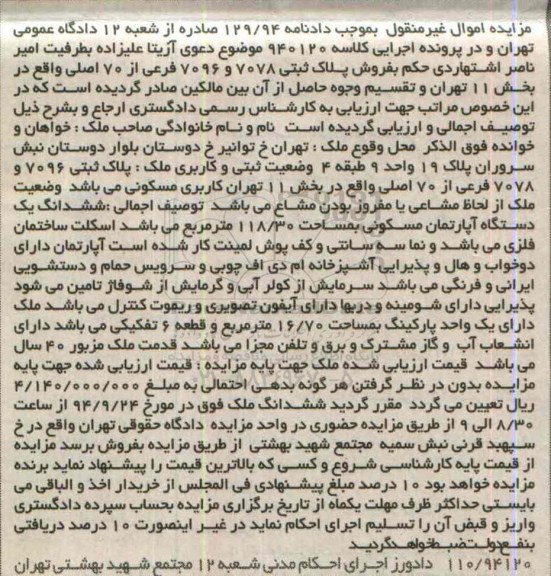 مزایده اموال غیرمنقول بموجب دادنامه ۱۲۹/۹۴ صادره از شعبه ۱۲ دادگاه عمومی
تهران و در پرونده اجرایی کلاسه ۹۴۰۱۲۰ موضوع دعوی آزیتا علیزاده بطرفیت امیر
ناصر اشتهاردی حکم بفروش پلاک ثبتی ۷۰۷۸ و ۷۰۹۶ فرعی از ۷۰ اصلی واقع در
بخش ۱۱ تهران و تقسیم وجوه حاصل از آن بین مالکین صادر گردیده است که در
این خصوص مراتب جهت ارزیابی به کارشناس رسمی دادگستری ارجاع و بشرح ذیل
توصیف اجمالی و ارزیابی گردیده است نام و نام خانوادگی صاحب ملک : خواهان و
خوانده فوق الذکر محل وقوع ملک : تهران خ توانیر خ دوستان بلوار دوستان نبش
سروران پلاک ۱۹ واحد ۹ طبقه ۴ وضعیت ثبتی و کاربری ملک : پلاک ثبتی ۷۰۹۶ و
۷۰۷۸ فرعی از ۷۰ اصلی واقع در بخش ۱۱ تهران کاربری مسکونی می باشد وضعیت
ملک از لحاظ مشاعی یا مفروز بودن مشاع می باشد توصیف اجمالی :ششدانگ یک
دستگاه آپارتمان مسکونی بمساحت ۱۱۸/۳۰ مترمربع می باشد اسکلت ساختمان
فلزی می باشد و نما سه سانتی و کف پوش لمینت کار شده است آپارتمان دارای
دوخواب و هال و پذیرایی آشپزخانه ام دی اف چوبی و سرویس حمام و دستشویی
ایرانی و فرنگی می باشد سرمایش از کولر آبی و گرمایش از شوفاژ تامین می شود
پذیرایی دارای شومینه و دربها دارای آیفون تصویری و ریموت کنترل می باشد ملک
دارای یک واحد پارکینگ بمساحت ۱۶/۷۰ مترمربع و قطعه ۶ تفکیکی می باشد دارای
انشعاب آب و گاز مشترک و برق و تلفن مجزا می باشد قدمت ملک مزبور ۴۰ سال
می باشد قیمت ارزیابی شده ملک جهت پایه مزایده : قیمت ارزیابی شده جهت پایه
مزایده بدون در نظر گرفتن هر گونه بدهی احتمالی به مبلغ ۴/۱۴۰/۰۰۰/۰۰۰
ریال تعیین می گردد مقرر گردید ششدانگ ملک فوق در مورخ ۹۴/۹/۲۴ از ساعت
۸/۳۰ الی ۹ از طریق مزایده حضوری در واحد مزایده دادگاه حقوقی تهران واقع در خ
سپهبد قرنی نبش سمیه مجتمع شهید بهشتی از طریق مزایده بفروش برسد مزایده
از قیمت پایه کارشناسی شروع و کسی که بالاترین قیمت را پیشنهاد نماید برنده
مزایده خواهد بود ۱۰ درصد مبلغ پیشنهادی فی المجلس از خریدار اخذ و الباقی می
بایستی حداکثر ظرف مهلت یکماه از تاریخ برگزاری مزایده بحساب سپرده دادگستری
واریز و قبض آن را تسلیم اجرای احکام نماید در غیر اینصورت ۱۰ درصد دریافتی
بنفع دولت ضبط خواهد گردید
۱۱۰/۹۴۱۲۰ دادورز اجرای احکام مدنی شعبه ۱۲ مجتمع شهید بهشتی تهران